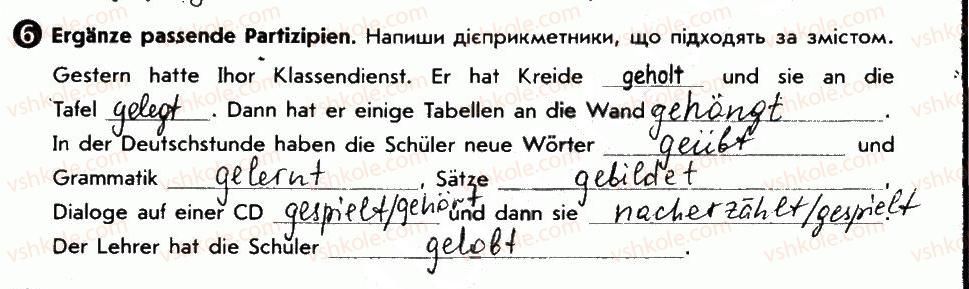 6 Ergänze passende Partizipien. Напиши дієприкметники, що підходять за змістом.
Gestern hatte Ihor Klassendienst. Er hat Kreide geholt und sie an die
Tafel gelegt. Dann hat er einige Tabellen an die Wand gehängt.
In der Deutschstunde haben die Schüler neue Wörter geübt und
Grammatik gelernt, Sätze gebildet,
Dialoge auf einer CD gespielt/gehört und dann sie nacherzählt/gespielt.
Der Lehrer hat die Schüler gelobt.